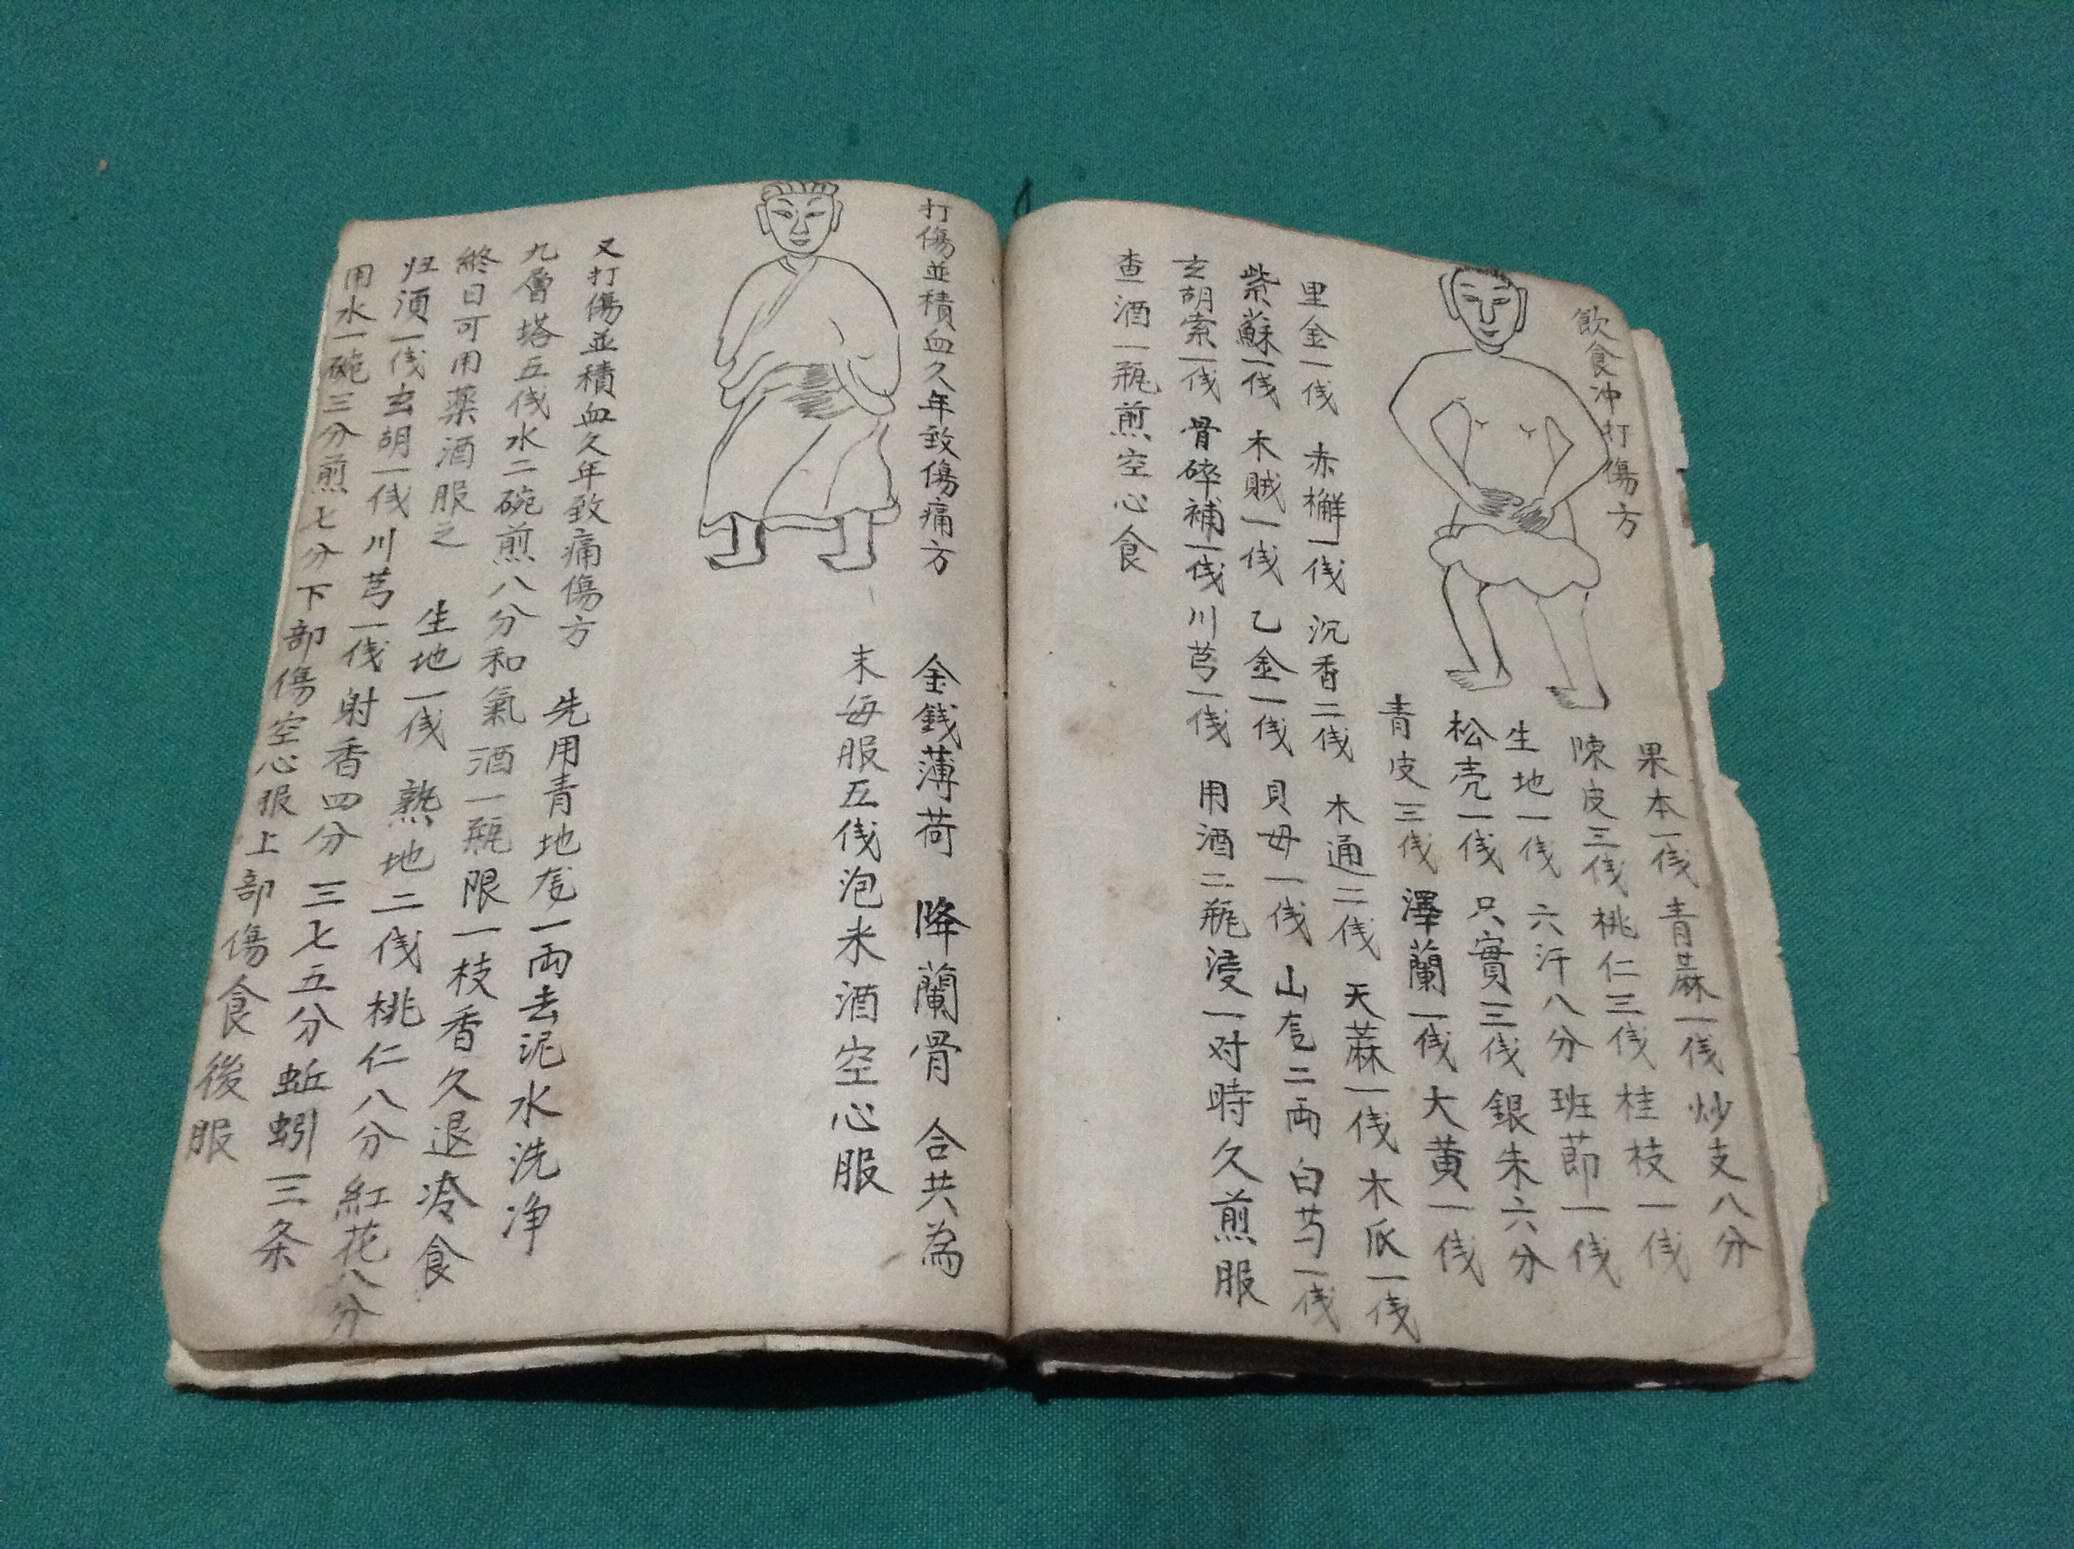 飲食冲打傷方
果本一伐 青蔴一伐 炒支八分
陳皮三伐 桃仁三伐 桂枝一伐
生地一伐 六汗八分 班節一伐
松壳一伐 只實三伐 銀朱六分
青皮三伐 澤蘭一伐 大黄一伐
里金一伐 赤檞一伐 沉香二伐 木通二伐 天蔴一伐 木瓜一伐
紫蘇一伐 木賊一伐 乙金一伐 貝母一伐 山 二両 白芍一伐
玄胡索一伐 骨碎補一伐 川芎一伐 用酒二瓶浸一对時久煎服
查酒一瓶煎空心食
打傷並積血久年致傷痛方
金錢薄荷 降蘭骨 合共為
末每服五伐泡米酒空心服
又打傷並積血久年致痛傷方 先用青地 一両去泥水洗净
九層塔五伐水二碗煎八分和氣酒一瓶限一枝香久退冷食
終日可用藥酒服之 生地一伐 熟地二伐 桃仁八分 紅花八分
归須一伐玄胡一伐川芎一伐射香四分三七五分蚯蚓三条
用水一碗三分煎七分下部傷空心服上部傷食後服